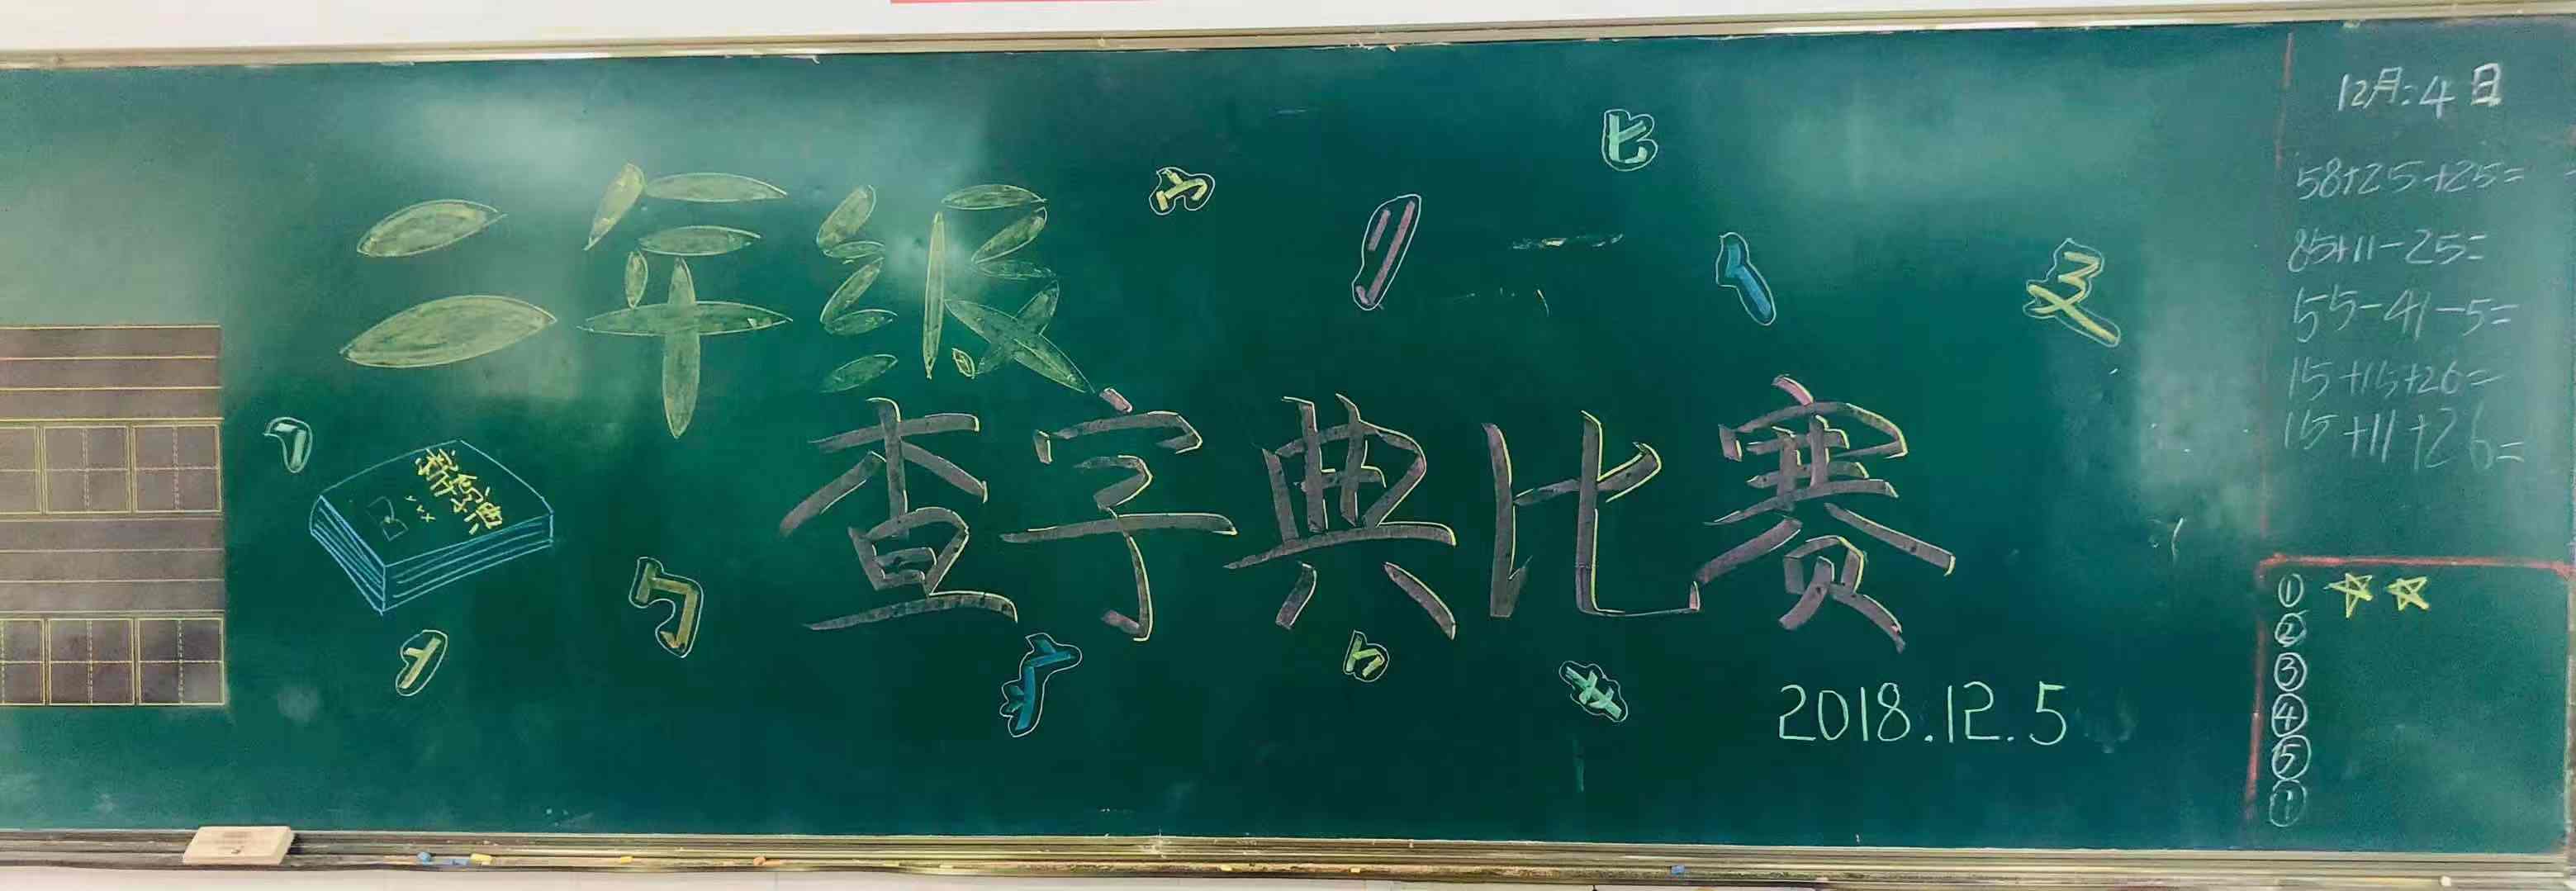 二年级
查字典比赛
新华字典
2018.12.5
12月4日
58+25+25=
85+11-25=
55-41-5=
15+15+26=
15+11+26=
①
②
③
④
⑤
①
匕